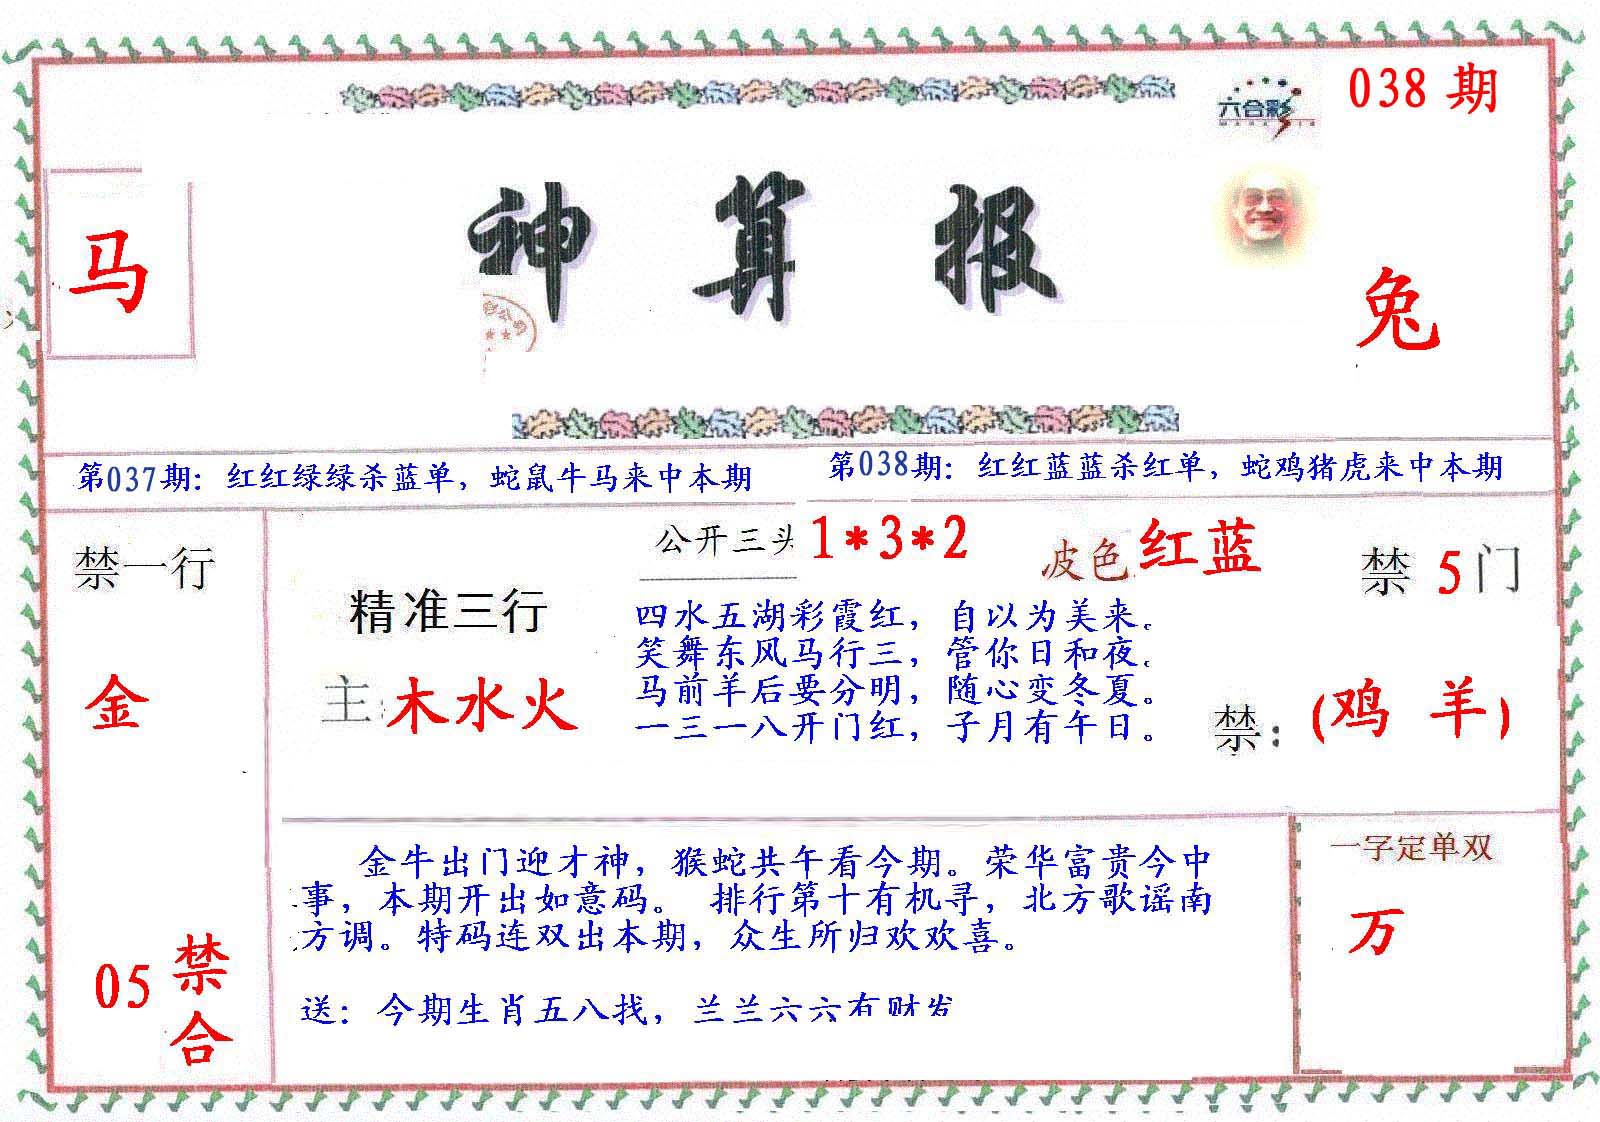 六合彩
038 期
神算报
马
兔
第037期：红红绿绿杀蓝单，蛇鼠牛马来中本期
第038期：红红蓝蓝杀红单，蛇鸡猪虎来中本期
禁一行
金
05 禁合
精准三行
主:木水火
公开三头 1*3*2
皮色 红蓝
禁 5 门
四水五湖彩霞红，自以为美来。
笑舞东风马行三，管你日和夜。
马前羊后要分明，随心变冬夏。
一三一八开门红，子月有午日。
禁：(鸡 羊)
金牛出门迎才神，猴蛇共午看今期。荣华富贵今中
事，本期开出如意码。 排行第十有机寻，北方歌谣南
方调。特码连双出本期，众生所归欢欢喜。
送：今期生肖五八找，兰兰六六有财发
一字定单双
万